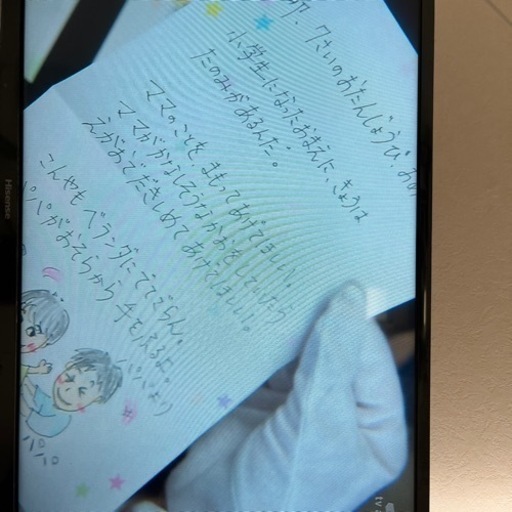 7さいのおたんじょうび、
小学生になったおまえに、きょうは
たのみがあるんだ。
ママのことを、まもってあげてほしい。
ママがかなしそうなかおをしていたら
えがおでだきしめてあげてほしい。
こんやも ベランダにでてごらん。
パパがおそらから 手をふるよ。
パパより
パパ
Hisense